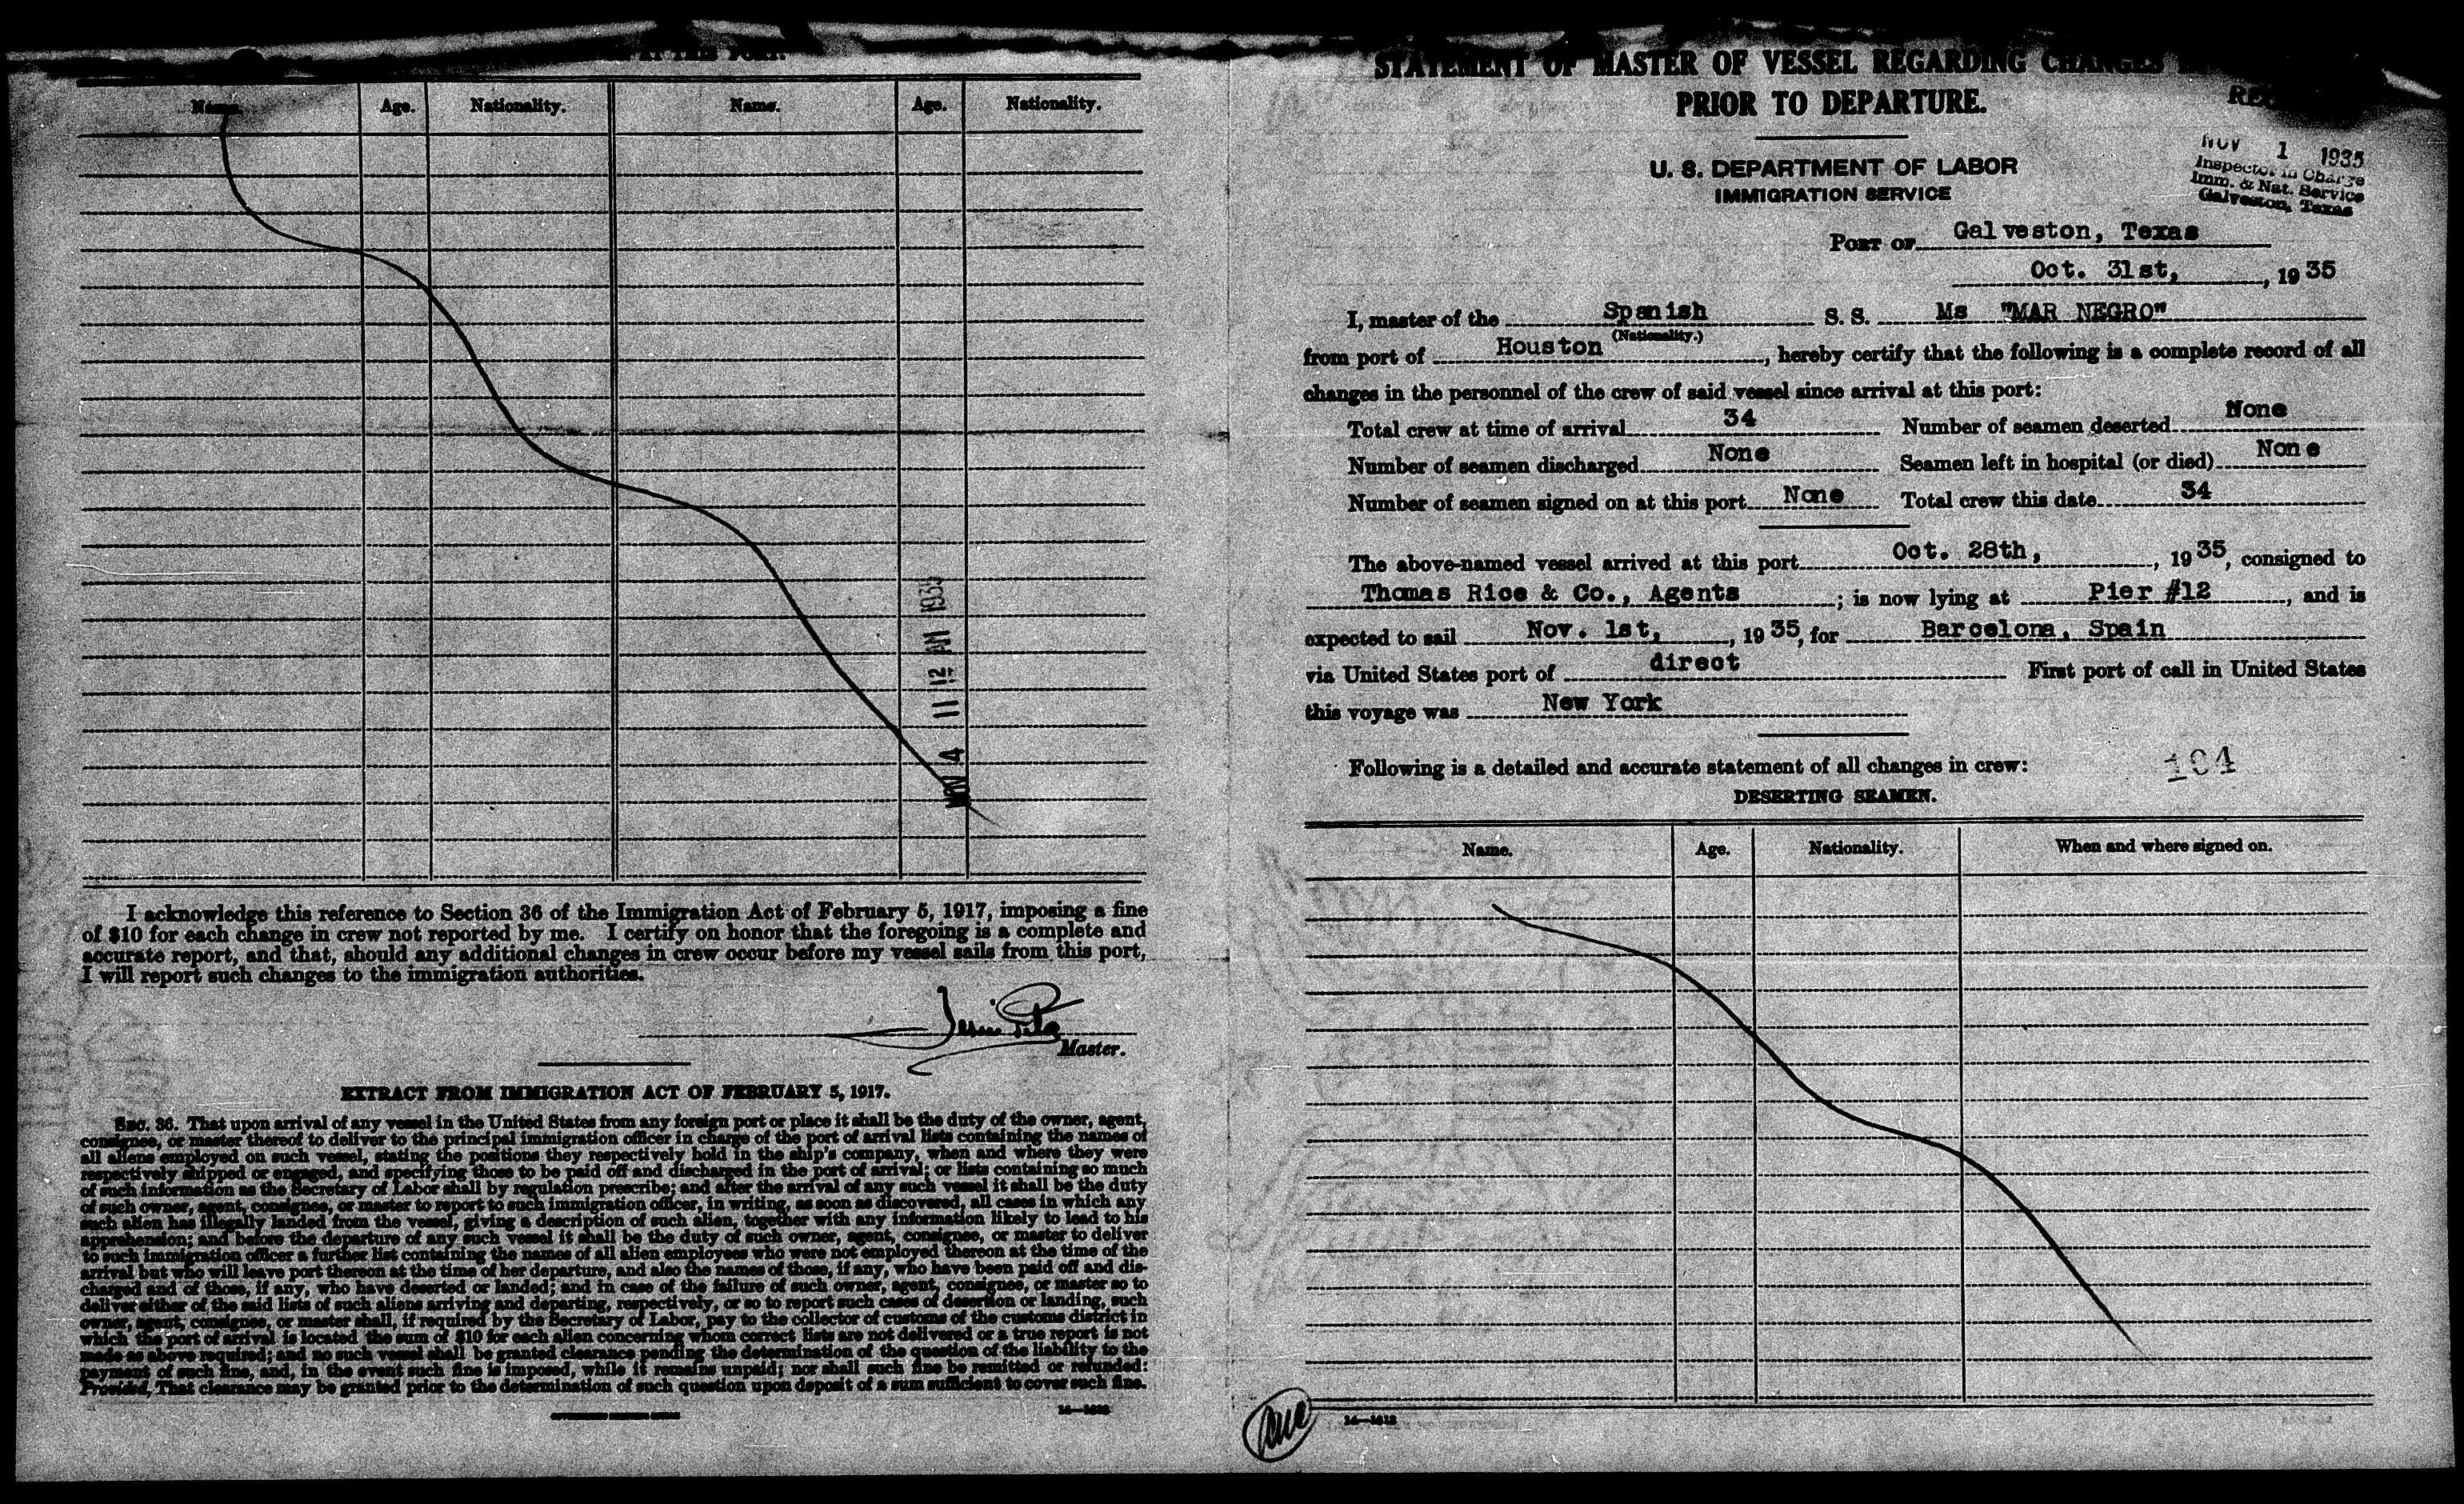 AT THIS PORT.
Name. Age. Nationality. Name. Age. Nationality.
NOV 4 11 12 AM 1935
I acknowledge this reference to Section 36 of the Immigration Act of February 5, 1917, imposing a fine
of $10 for each change in crew not reported by me. I certify on honor that the foregoing is a complete and
accurate report, and that, should any additional changes in crew occur before my vessel sails from this port,
I will report such changes to the immigration authorities.
Master.
EXTRACT FROM IMMIGRATION ACT OF FEBRUARY 5, 1917.
SEC. 36. That upon arrival of any vessel in the United States from any foreign port or place it shall be the duty of the owner, agent,
consignee, or master thereof to deliver to the principal immigration officer in charge of the port of arrival lists containing the names of
all aliens employed on such vessel, stating the positions they respectively hold in the ship's company, when and where they were
respectively shipped or engaged, and specifying those to be paid off and discharged in the port of arrival; or lists containing so much
of such information as the Secretary of Labor shall by regulation prescribe; and after the arrival of any such vessel it shall be the duty
of such owner, agent, consignee, or master to report to such immigration officer, in writing, as soon as discovered, all cases in which any
such alien has illegally landed from the vessel, giving a description of such alien, together with any information likely to lead to his
apprehension; and before the departure of any such vessel it shall be the duty of such owner, agent, consignee, or master to deliver
to such immigration officer a further list containing the names of all alien employees who were not employed thereon at the time of the
arrival but who will leave port thereon at the time of her departure, and also the names of those, if any, who have been paid off and dis-
charged and of those, if any, who have deserted or landed; and in case of the failure of such owner, agent, consignee, or master so to
deliver either of the said lists of such aliens arriving and departing, respectively, or so to report such cases of desertion or landing, such
owner, agent, consignee, or master shall, if required by the Secretary of Labor, pay to the collector of customs of the customs district in
which the port of arrival is located the sum of $10 for each alien concerning whom correct lists are not delivered or a true report is not
made as above required; and no such vessel shall be granted clearance pending the determination of the question of the liability to the
payment of such fine, and, in the event such fine is imposed, while it remains unpaid; nor shall such fine be remitted or refunded:
Provided, That clearance may be granted prior to the determination of such question upon deposit of a sum sufficient to cover such fine.
14—1612
STATEMENT OF MASTER OF VESSEL REGARDING CHANGES
PRIOR TO DEPARTURE.
U. S. DEPARTMENT OF LABOR
IMMIGRATION SERVICE
NOV 1 1935
Inspector in Charge
Imm. & Nat. Service
Galveston, Texas
PORT OF Galveston, Texas
Oct. 31st, , 1935
I, master of the Spanish S. S. Ms "MAR NEGRO"
(Nationality.)
from port of Houston , hereby certify that the following is a complete record of all
changes in the personnel of the crew of said vessel since arrival at this port:
Total crew at time of arrival 34 Number of seamen deserted None
Number of seamen discharged None Seamen left in hospital (or died) None
Number of seamen signed on at this port None Total crew this date 34
The above-named vessel arrived at this port Oct. 28th, , 1935, consigned to
Thomas Rice & Co., Agents ; is now lying at Pier #12 , and is
expected to sail Nov. 1st, , 1935, for Barcelona, Spain
via United States port of direct First port of call in United States
this voyage was New York
Following is a detailed and accurate statement of all changes in crew: 104
DESERTING SEAMEN.
Name. Age. Nationality. When and where signed on.
14—1612